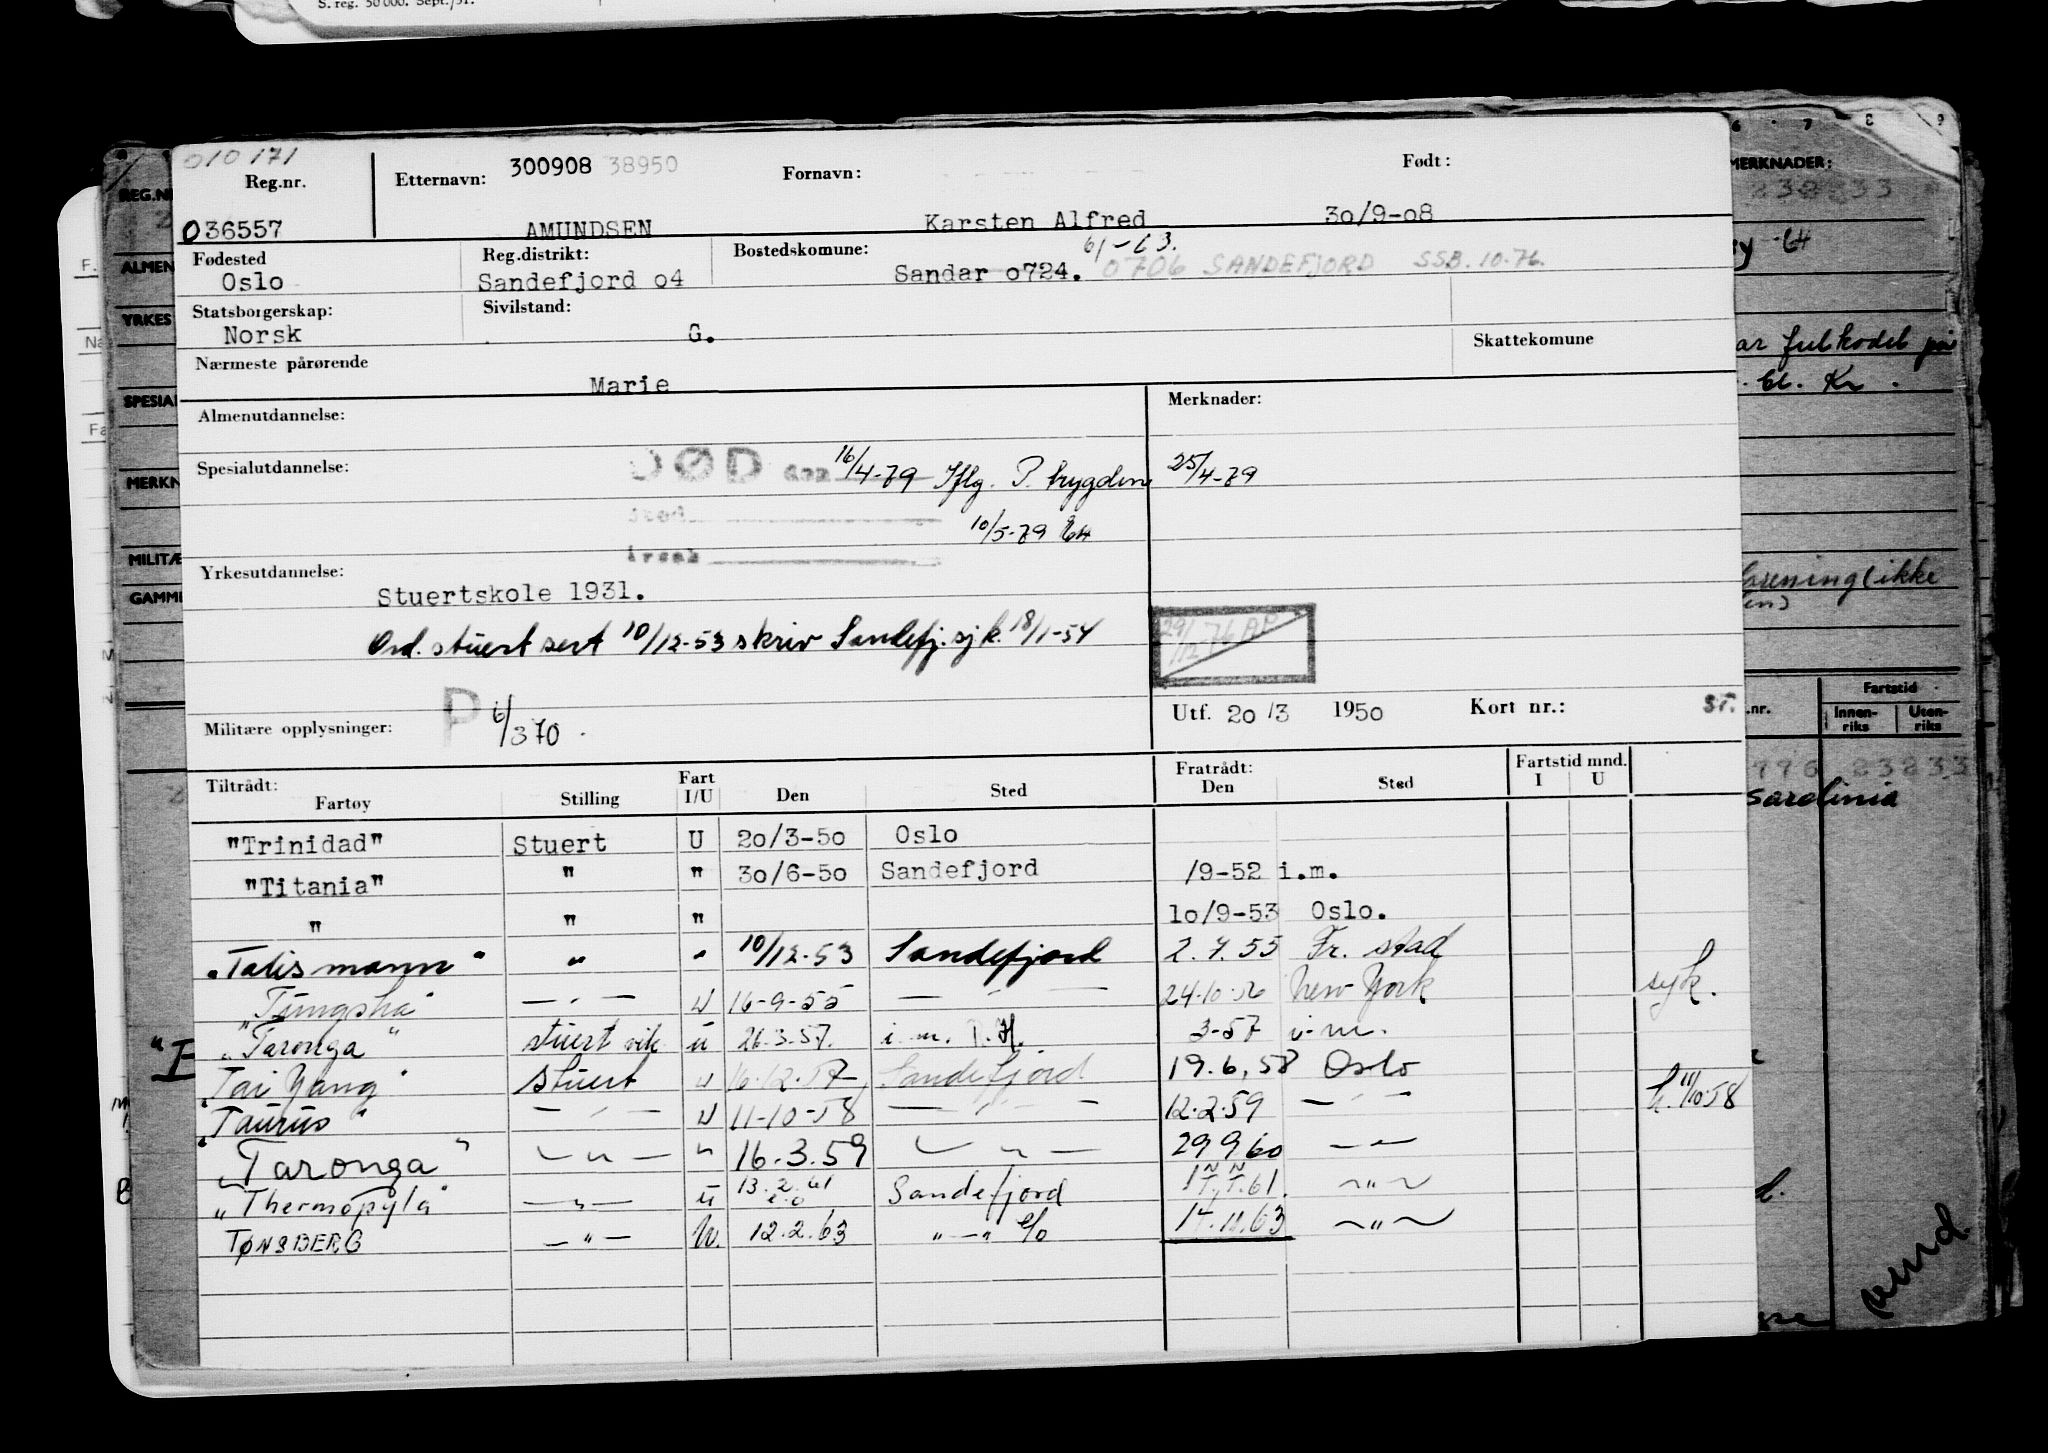 S. reg. 50 000. Sept./51.
010171
Reg.nr.
Etternavn: 300908 38950
Fornavn:
Født:
036557
AMUNDSEN
Karsten Alfred
30/9-08
Fødested
Reg.distrikt:
Bostedskomune:
61-63.
Oslo
Sandefjord 04
Sandar 0724. 0706 SANDEFJORD SSB. 10-76.
Statsborgerskap:
Sivilstand:
Norsk
G.
Skattekomune
Nærmeste pårørende
Marie
Almenutdannelse:
Merknader:
Spesialutdannelse:
DØD 16/4-79 Iflg. P. trygden 25/4-79
sted
10/5-79
årsak
Yrkesutdannelse:
Stuertskole 1931.
Ord. stuert sert 10/12-53 skriv Sandefj. sjk. 18/1-54
29/12-76 AP
Militære opplysninger:
P 6/370
Utf. 20/3 1950
Kort nr.:
ST.
Tiltrådt:
Fartøy
Stilling
Fart I/U
Den
Sted
Fratrådt:
Den
Sted
Fartstid mnd.
I U
"Trinidad" Stuert U 20/3-50 Oslo
"Titania" " " 30/6-50 Sandefjord /9-52 i.m.
" " " 10/9-53 Oslo.
"Talismann" " " 10/12-53 Sandefjord 2.7.55 Fr. stad
"Tungsha" — " — U 16-9-55 — " — 24-10-56 New York syk.
"Taronga" stuert vik ü 26.3.57. i.m. P.H. 3-57 i-m.
"Tai Yang" Stuert U 16-12-57 Sandefjord 19.6.58 Oslo
"Taurus" — " — U 11-10-58 — " — 12-2-59 — " — h. 11/10-58
"Taronga" — " — " 16.3.59 — " — 29 9 60 — " —
"Thermopylä" — " — ü 13.2.61 Sandefjord — " —
TØNSBERG — " — U. 12.2.63 " — " % 14.11.63 — " —
REG.NR
ALMEN
YRKES
SPESIAL
MERKN
MILITÆ
GAMML
MERKNADER:
Fartstid
.nr.
Innen-riks
Uten-riks
Sardinia